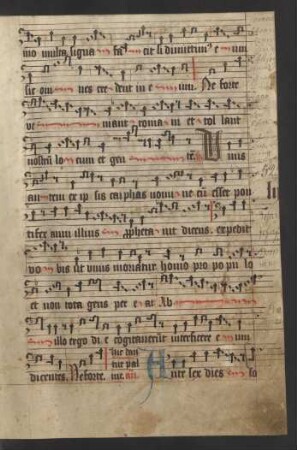 mo multa signa fa cit si dimittimus e um
sic om nes cre dent in e um Ne forte
ve niant roma ni et tol lant
nostrum lo cum et gen te Unus
au tem ex ip sis cayphas nomi ne cum esset pon
tifex anni illius prophetavit dicens expedit
vo bis ut unus moriatur homo pro po pu lo
et non tota gens per e at Ab
illo ergo di e cogitaverunt interficere e um
dicentes Ne forte An te sex dies so